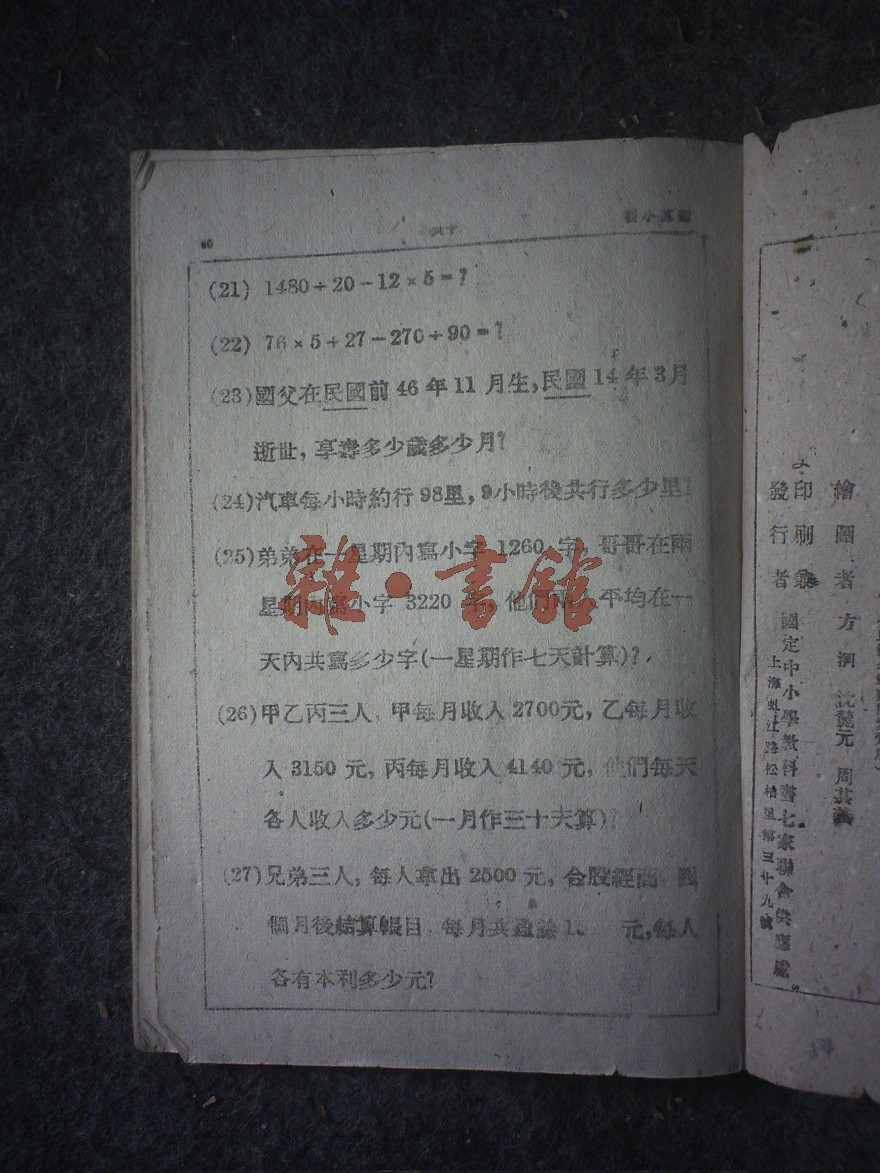 60
(21) 1480÷20－12×5＝?
(22) 76×5＋27－270÷90＝?
(23)國父在民國前46年11月生,民國14年3月
逝世,享壽多少歲多少月?
(24)汽車每小時約行98里,9小時後共行多少里?
(25)弟弟在一星期內寫小字1260字,哥哥在兩
星期內寫小字3220字,他們兩 平均在一
天內共寫多少字(一星期作七天計算)?
(26)甲乙丙三人,甲每月收入2700元,乙每月收
入3150元,丙每月收入4140元,他們每天
各人收入多少元(一月作三十天算)?
(27)兄弟三人,每人拿出2500元,合股經商,四
個月後結算帳目,每月共盈餘 元,每人
各有本利多少元?
雜·書館
繪圖者 方洞 沈 元 周其
印刷
發行者 國定中小學教科書七家聯合供應處
上海虬江路松柏里第三十九號